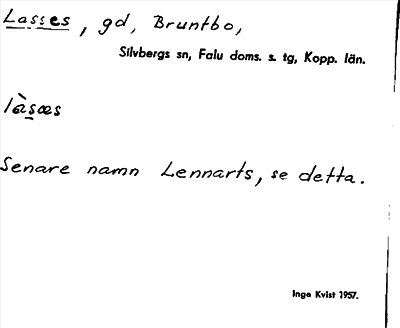 Lasses, gd, Bruntbo,
Silvbergs sn, Falu doms. s. tg, Kopp. län.
làsæs
Senare namn Lennarts, se detta.
Inga Kvist 1957.